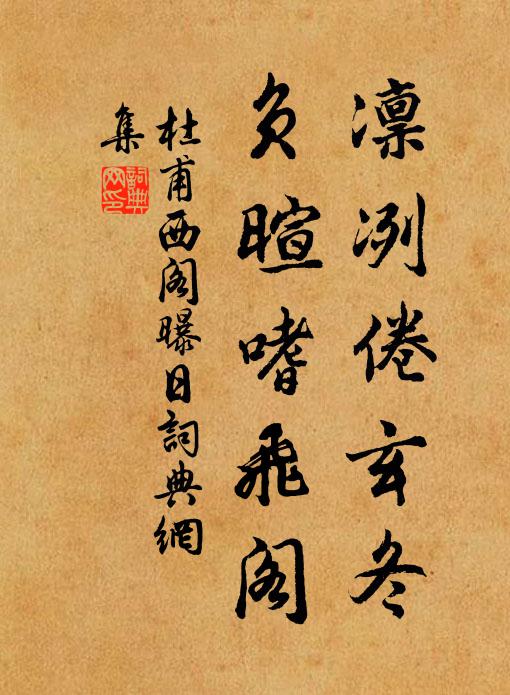 凛冽倦玄冬
負暄嗜飛閣
杜甫西阁曝日詞典網
集
詞典網印